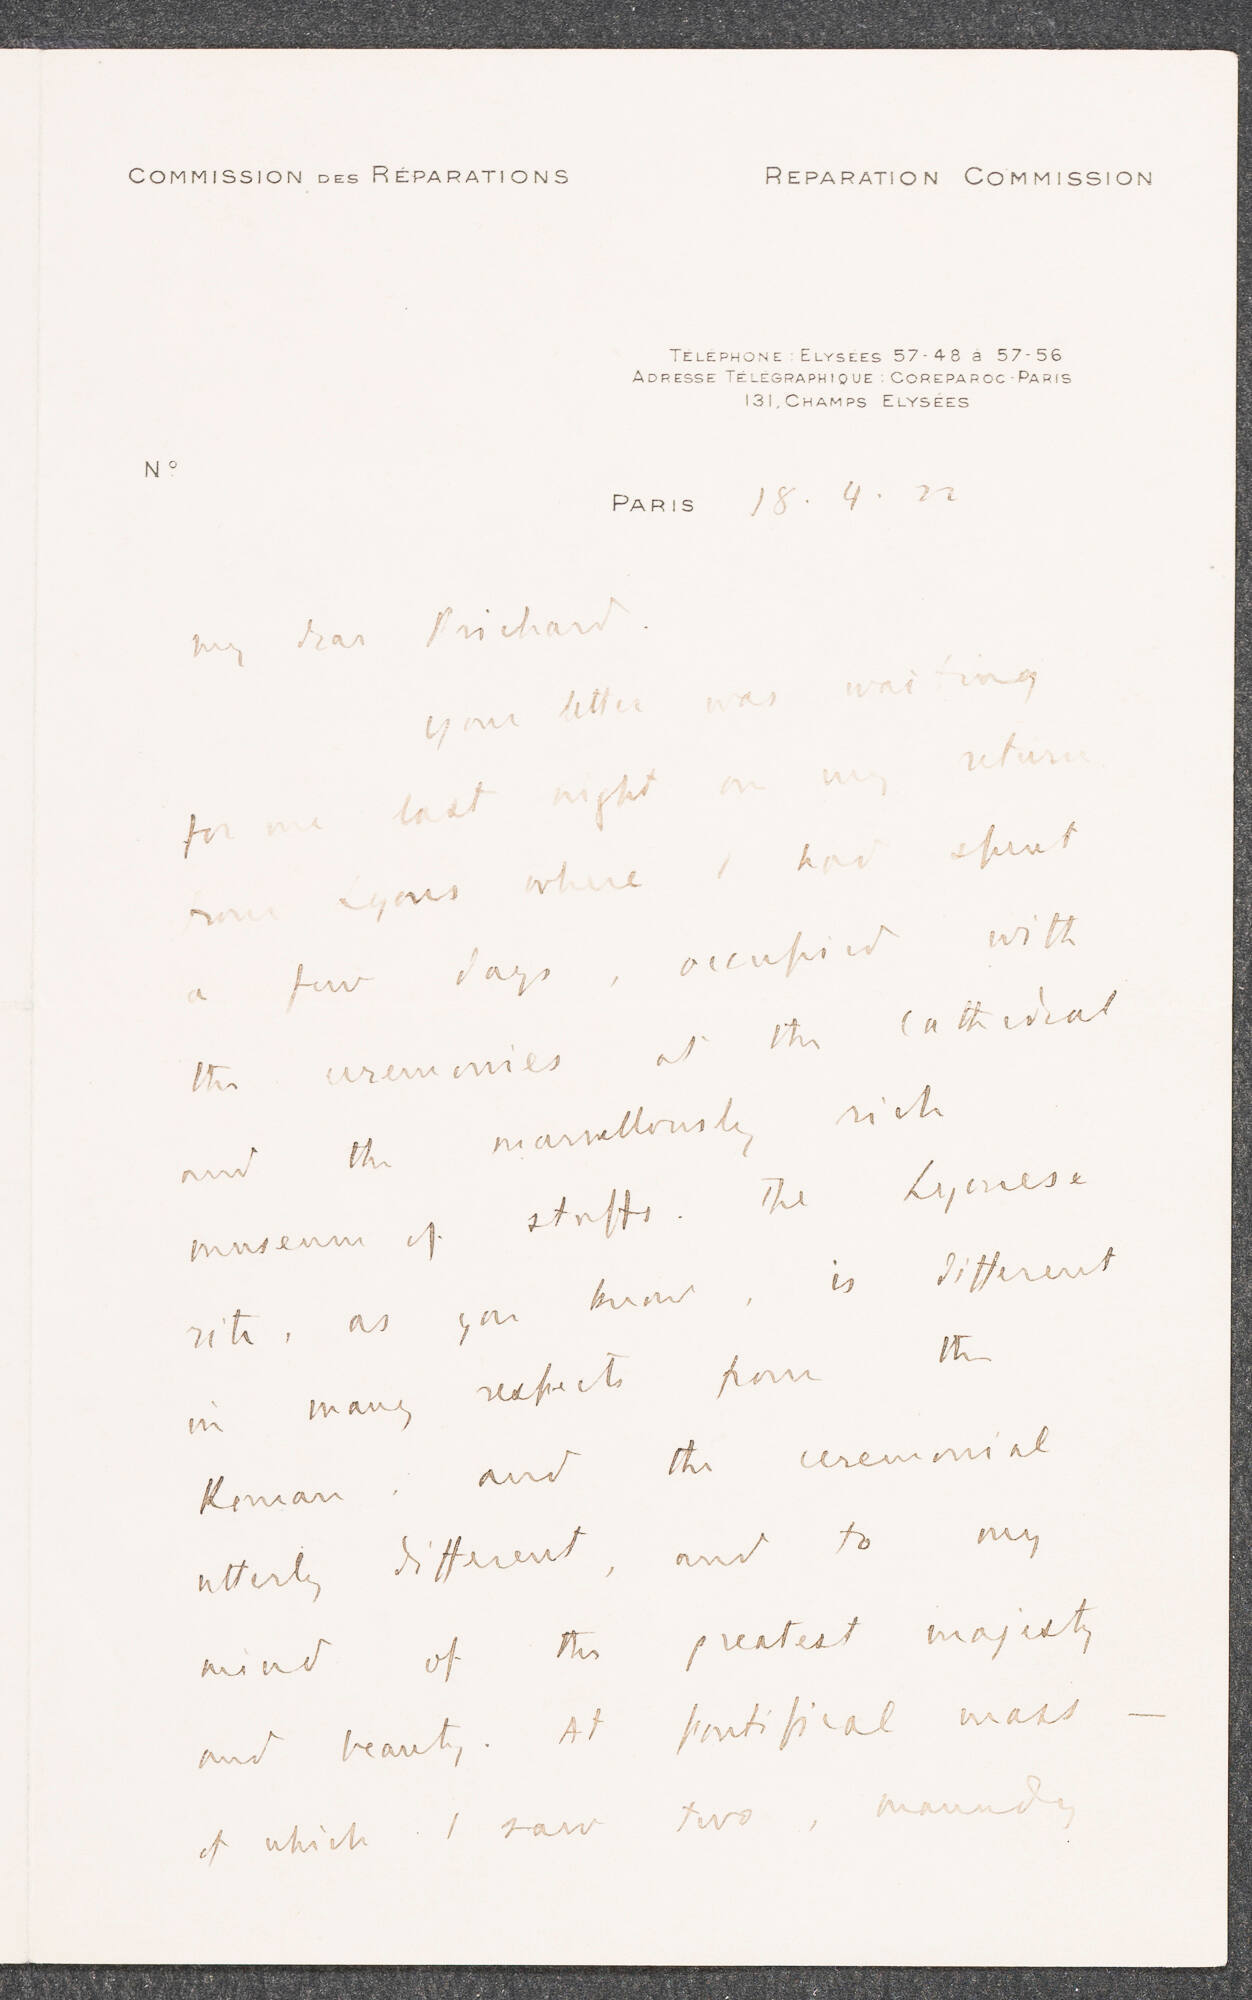 COMMISSION DES RÉPARATIONS
REPARATION COMMISSION
TÉLÉPHONE : ELYSÉES 57-48 à 57-56
ADRESSE TÉLÉGRAPHIQUE : COREPAROC-PARIS
131, CHAMPS ELYSÉES
N°
PARIS 18. 4. 22
My dear Prichard.
your letter was waiting
for me last night on my return
from Lyons where I had spent
a few days, occupied with
the ceremonies at the Cathedral
and the marvellously rich
museum of stuffs. The Lyonese
rite, as you know, is different
in many respects from the
Roman, and the ceremonial
utterly different, and to my
mind of the greatest majesty
and beauty. At pontifical mass —
of which I saw two, maundy